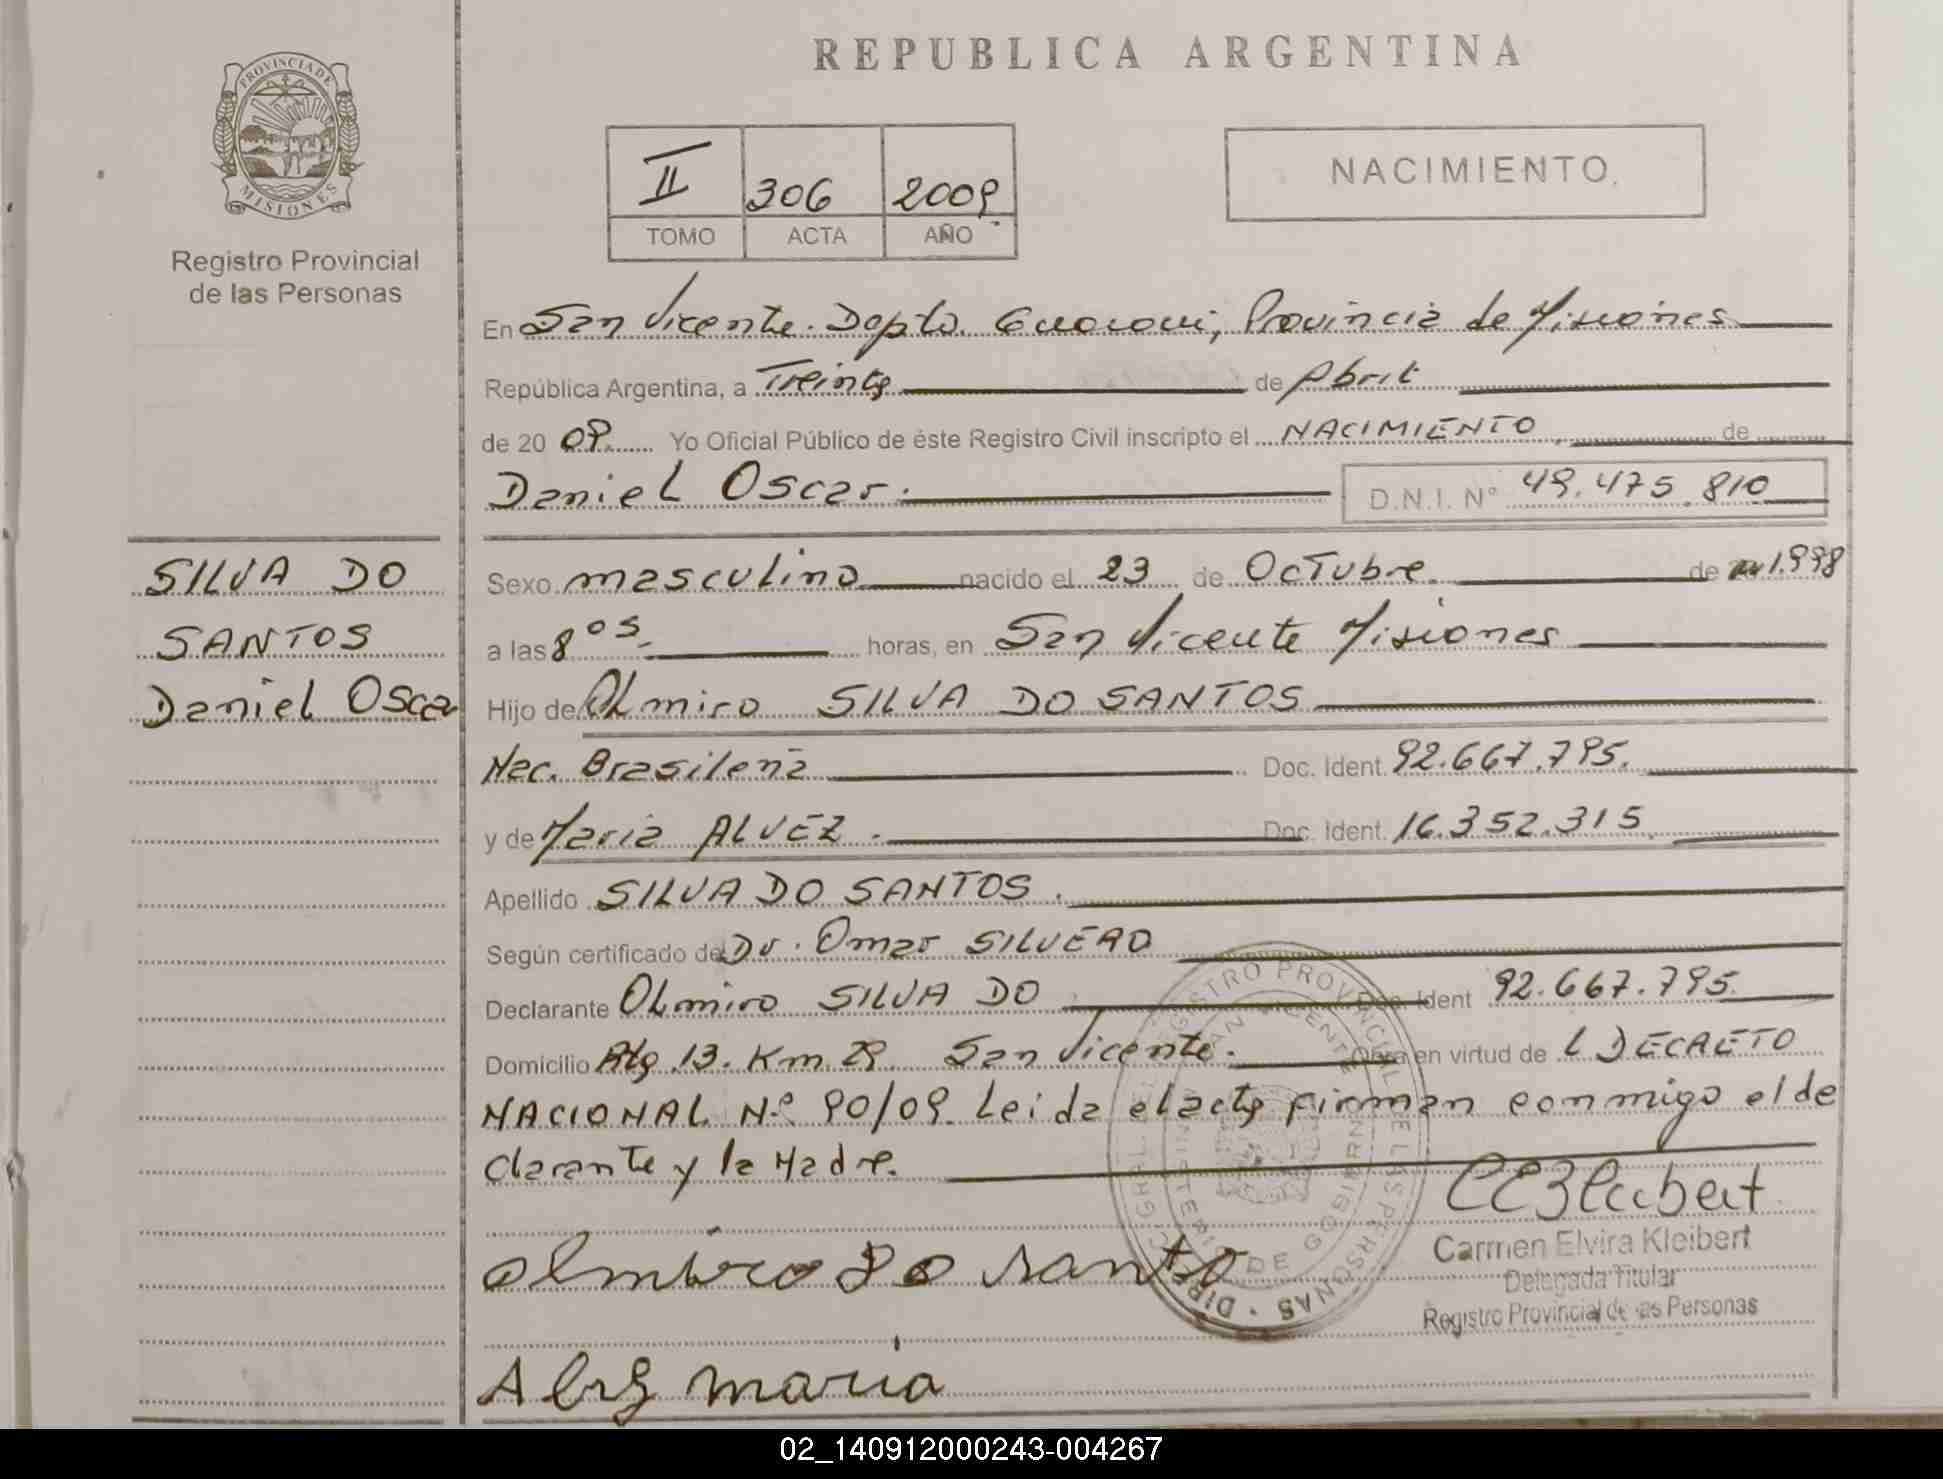 REPUBLICA ARGENTINA
PROVINCIA DE MISIONES
Registro Provincial
de las Personas
II 306 2009
TOMO ACTA AÑO
NACIMIENTO
En San Vicente. Depto. Guarani, Provincia de Misiones
República Argentina, a Treinta de Abril
de 20 09. Yo Oficial Público de éste Registro Civil inscripto el NACIMIENTO de
Daniel Oscar. D.N.I. N° 49.475.810
SILVA DO
SANTOS
Daniel Oscar
Sexo masculino nacido el 23 de Octubre de 1.998
a las 8 os. horas, en San Vicente Misiones
Hijo de Olmiro SILVA DO SANTOS
Nac. Brasileña Doc. Ident. 92.667.795.
y de Maria ALVEZ. Doc. Ident. 16.352.315.
Apellido SILVA DO SANTOS.
Según certificado de Dr. Omar SILVERO
Declarante Olmiro SILVA DO Doc. Ident 92.667.795.
Domicilio 13. Km. 29. San Vicente. Obra en virtud de L DECRETO
NACIONAL Nº 90/09. Leida el acta firman conmigo el de
clarante y la Madre.
Olmiro Do Santo
maria
Carmen Elvira Kleibert
Delegada Titular
Registro Provincial de las Personas
REGISTRO PROVINCIAL DE LAS PERSONAS
SAN VICENTE
MINISTERIO DE GOBIERNO
02_140912000243-004267